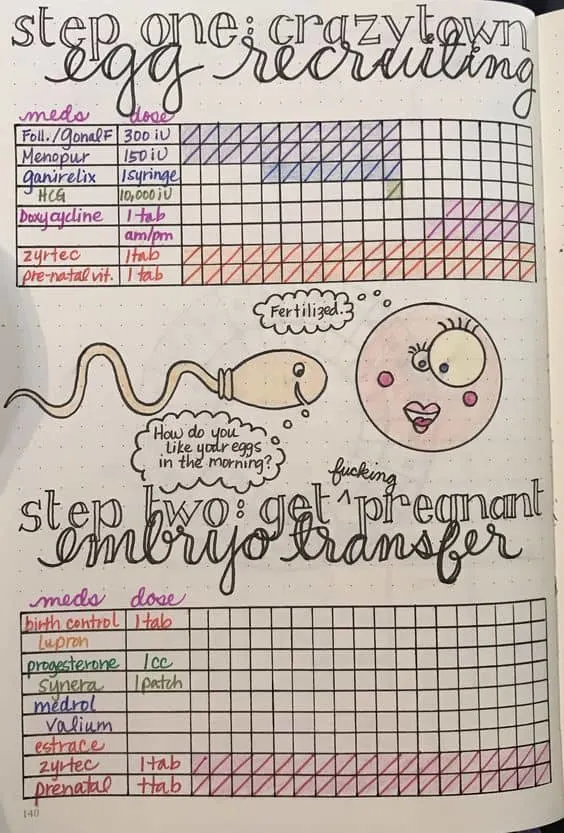 step one: crazytown
egg recruiting
meds dose
Foll./gonalF 300 iu
Menopur 150 iu
ganirelix 1 syringe
HCG 10,000 iu
Doxycycline 1 tab
am/pm
zyrtec 1 tab
pre-natal vit. 1 tab
Fertilized.
How do you
like your eggs
in the morning?
fucking
step two: get ^ pregnant
embryo transfer
meds dose
birth control 1 tab
lupron
progesterone 1 cc
synera 1 patch
medrol
valium
estrace
zyrtec 1 tab
prenatal 1 tab
140